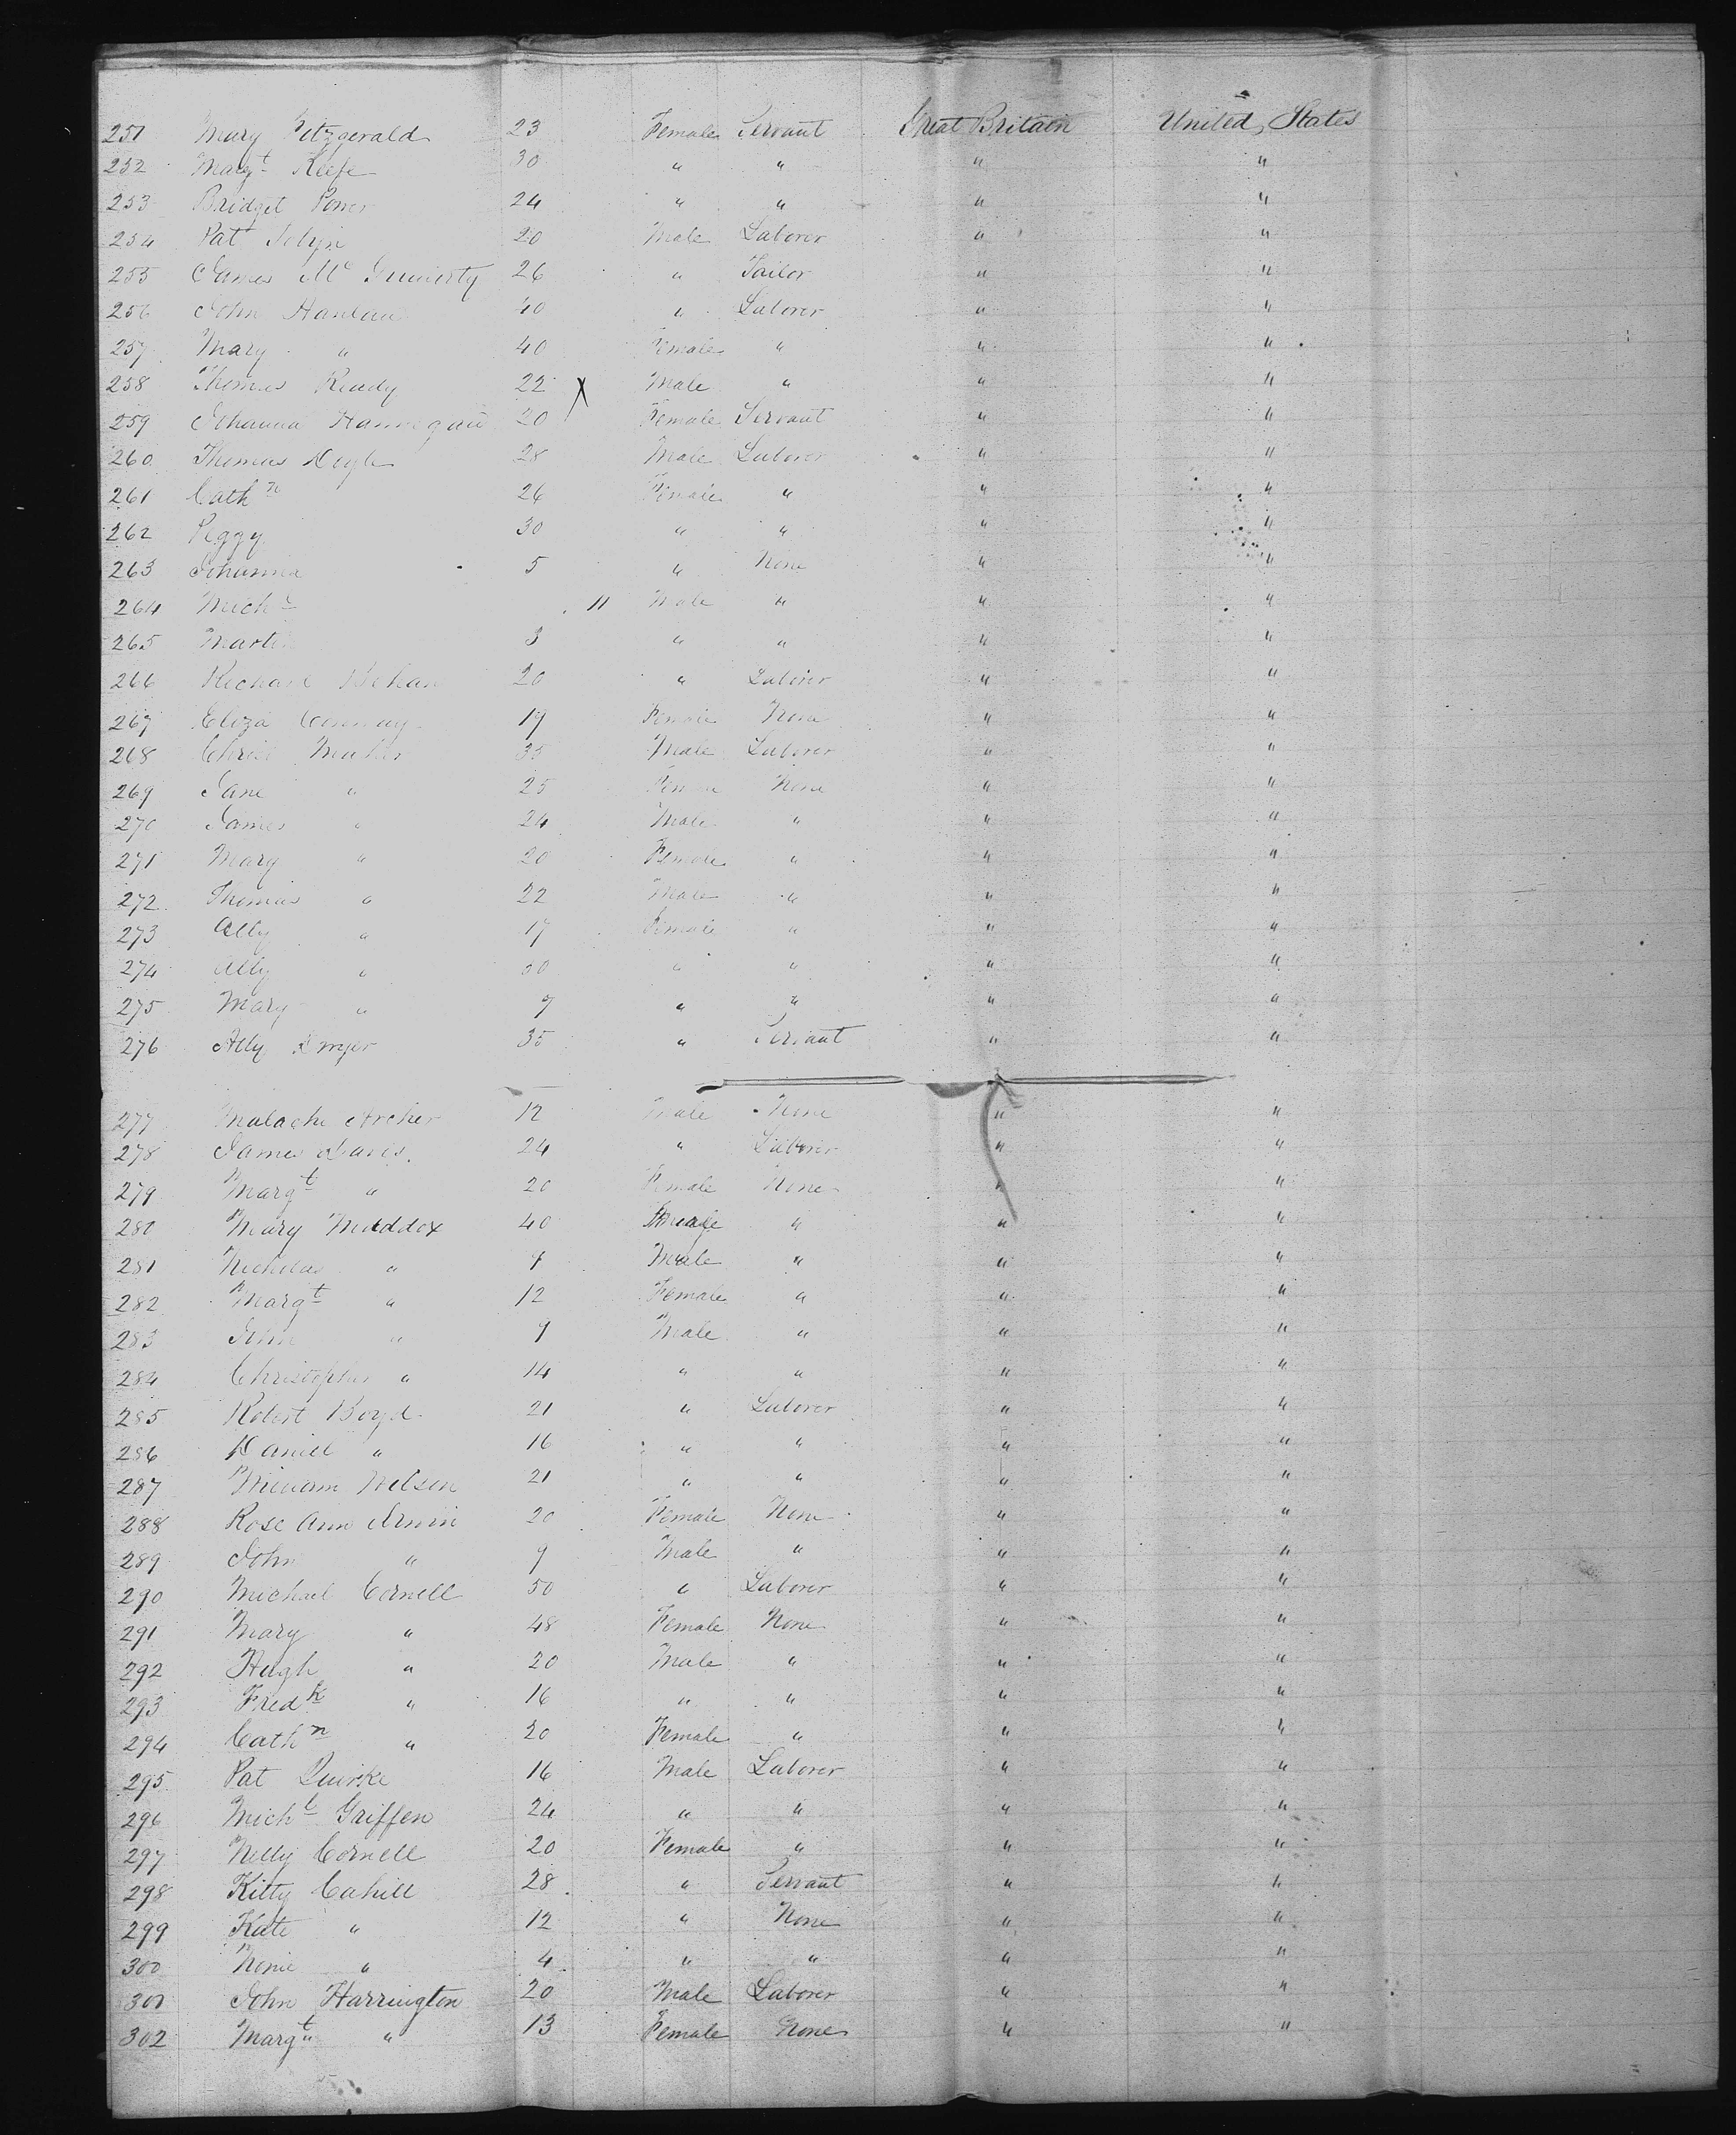 251 Mary Fitzgerald 23 Female Servant Great Britain United States
252 Margt Keefe 30 " " " "
253 Bridget Power 24 " " " "
254 Pat 20 Male Laborer " "
255 James Mc 26 " Tailor " "
256 John Hanlan 40 " Laborer " "
257 Mary " 40 Female " " "
258 Thomas Ready 22 Male " " "
259 Johanna 20 Female Servant " "
260 Thomas 28 Male Laborer " "
261 Cathn 26 Female " " "
262 Peggy 30 " " " "
263 Johanna 5 " None " "
264 Michl 11 Male " " "
265 Martin 3 " " " "
266 Richard Behan 20 " Laborer " "
267 Eliza 19 Female None " "
268 Maher 35 Male Laborer " "
269 Jane " 25 Female None " "
270 James " 24 Male " " "
271 Mary " 20 Female " " "
272 Thomas " 22 Male " " "
273 Ally " 17 Female " " "
274 Ally " 30 " " " "
275 Mary " 7 " " " "
276 Ally Dwyer 35 " Servant " "
277 Malachi Archer 12 Male None " "
278 James Davis 24 " Laborer " "
279 Margt " 20 Female None " "
280 Mary Maddox 40 Female " " "
281 Nicholas " Male " " "
282 Margt " 12 Female " " "
283 John " 9 Male " " "
284 Christopher " 14 " " " "
285 Robert Boyd 21 " Laborer " "
286 Daniel " 16 " " " "
287 William Wilson 21 " " " "
288 Rose Ann Irwin 20 Female None " "
289 John " 9 Male " " "
290 Michael Cornell 50 " Laborer " "
291 Mary " 48 Female None " "
292 Hugh " 20 Male " " "
293 Fredk " 16 " " " "
294 Cathn " 20 Female " " "
295 Pat Quirke 16 Male Laborer " "
296 Michl Griffen 24 " " " "
297 Nelly Cornell 20 Female " " "
298 Kitty Cahill 28 " Servant " "
299 Kate " 12 " None " "
300 Nonie " 4 " " " "
301 John Harrington 20 Male Laborer " "
302 Margt " 13 Female None " "